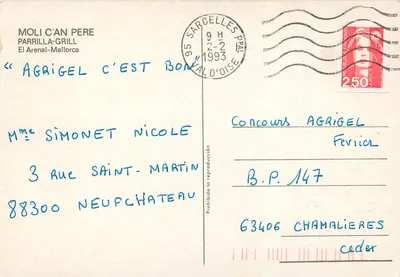 MOLI C'AN PERE
PARRILLA-GRILL
El Arenal-Mallorca
95 SARCELLES PPAL
9 H
2-2
1993
VAL D'OISE
2,50
" AGRIGEL C'EST BON
Mme SIMONET NICOLE
3 RUE SAINT-MARTIN
88300 NEUFCHATEAU
Prohibida la reproducción
Concours AGRIGEL
Fevrier
B.P. 147
63406 CHAMALIERES
cedex